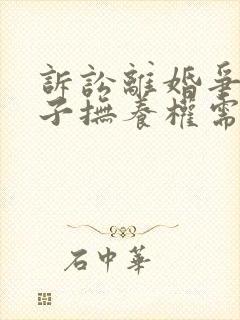 訴訟離婚爭
子撫養權需
石中華